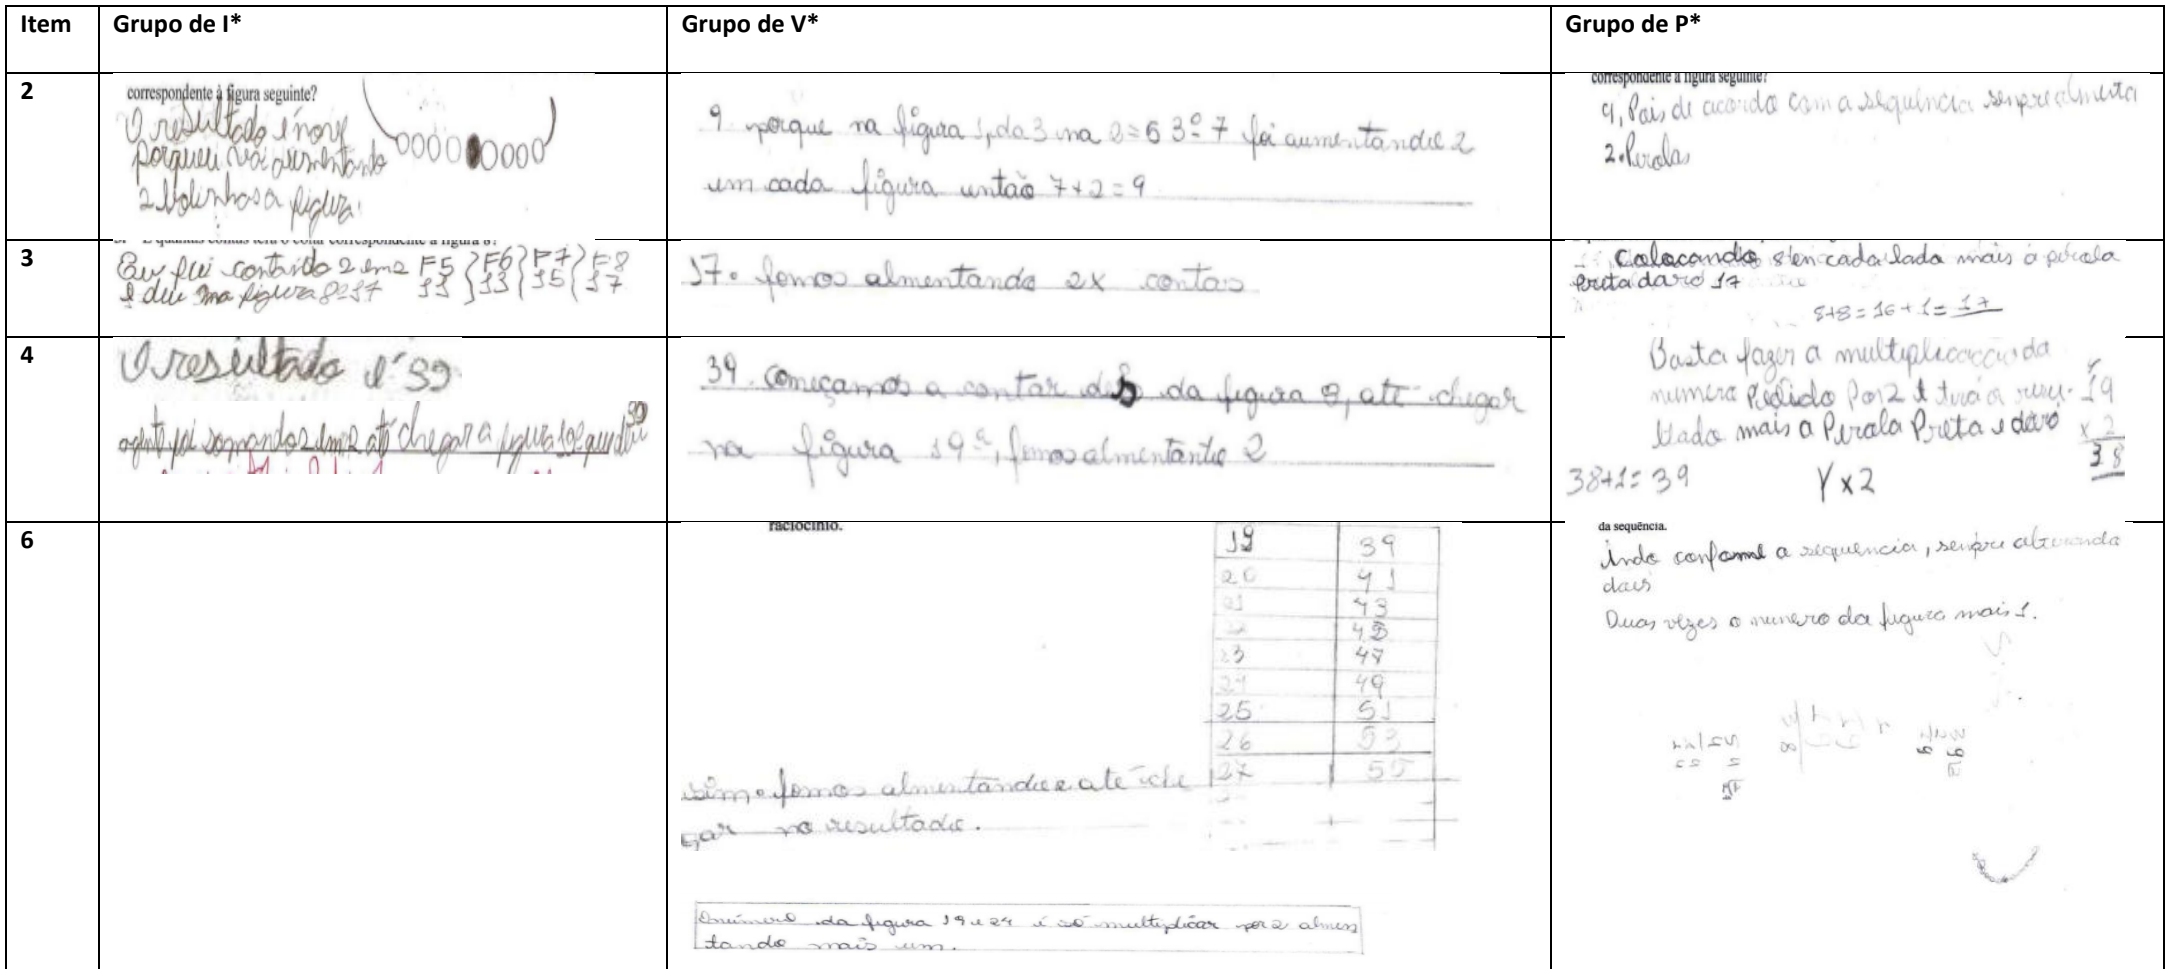 Item Grupo de I* Grupo de V* Grupo de P*
2
correspondente à figura seguinte?
O resultado é nove
porqueu vai aumentando
2 bolinhas a figura.
9 porque na figura 1, da 3 na 2=5 3º 7 foi aumentando 2
em cada figura então 7+2=9
correspondente à figura seguinte?
9, Pois de acordo com a sequência senpre almenta
2. Perolas
3
E quantas contas terá o colar correspondente à figura 8?
Eu fui contando 2 em 2 F5 } F6 } F7 } F8
e deu na figura 8=17 11 } 13 { 15 { 17
17. fomos almentando 2x contas
Colocando 8 en cada lado mais a perola
Preta dará 17
8+8=16+1=17
4
O resultado é 39
agente foi somando 2 em 2 até chegar a figura 19 que deu 39
39. Começamos a contar da figura 8, até chegar
na figura 19ª, fomos almentando 2
Basta fazer a multiplicação da
numero Pedido Por 2 e tera o resul- 19
tado mais a Perola Preta e dará x 2
38
38+1=39 Y x 2
6
raciocínio.
19 39
20 41
21 43
22 45
23 47
24 49
25 51
26 53
27 55
sim. fomos almentando 2 até che
gar no resultado.
O número da figura 19 e 24 é só multiplicar por 2 almen
tando mais um.
da sequência.
Indo conforme a sequencia, senpre
Duas vezes o numero da figura mais 1.